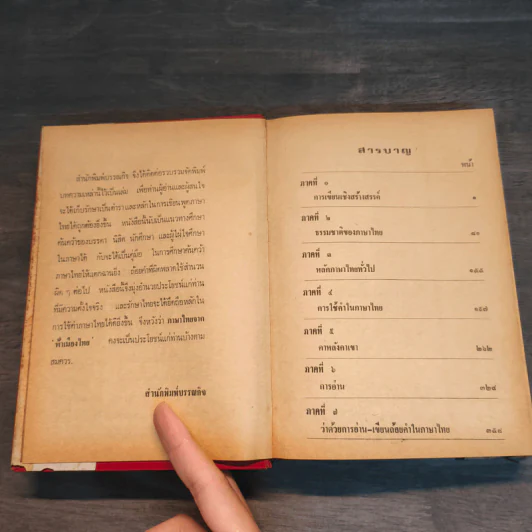 สำนักพิมพ์บรรณกิจ จึงได้ติดต่อรวบรวมจัดพิมพ์
บทความเหล่านี้ไว้เป็นเล่ม เพื่อท่านผู้อ่านและผู้สนใจ
จะได้เก็บรักษาเป็นตำราและหลักในการเขียน พูดภาษา
ไทยได้ถูกต้องยิ่งขึ้น หนังสือนี้นับเป็นแนวทางศึกษา
ค้นคว้าของบรรดา นิสิต นักศึกษา และผู้ใฝ่ใจศึกษา
ในภาษาใต้ ก็จะได้เป็นคู่มือ ในการศึกษาค้นคว้า
ภาษาไทยให้แตกฉานยิ่ง ถ้อยคำที่ผิดพลาดใช้สำนวน
ผิด ๆ ต่อไป หนังสือนี้จึงมุ่งอำนวยประโยชน์แก่ท่าน
ที่มีความตั้งใจจริง และรักษาไทยจะได้ยึดถือหลักใน
การใช้คำภาษาไทยได้ดียิ่งขึ้น จึงหวังว่า ภาษาไทยจาก
"พื้นเมืองไทย" คงจะเป็นประโยชน์แก่ท่านบ้างตาม
สมควร.
สำนักพิมพ์บรรณกิจ
สารบาญ
หน้า
ภาคที่ ๑
การเขียนเชิงสร้างสรรค์ ๑
ภาคที่ ๒
ธรรมชาติของภาษาไทย
ภาคที่ ๓
หลักภาษาไทยทั่วไป
ภาคที่ ๔
การใช้คำในภาษาไทย
ภาคที่ ๕
คาพลังคาเขา ๒๖๒
ภาคที่ ๖
การอ่าน ๓๒๔
ภาคที่ ๗
ว่าด้วยการอ่าน-เขียนถ้อยคำในภาษาไทย